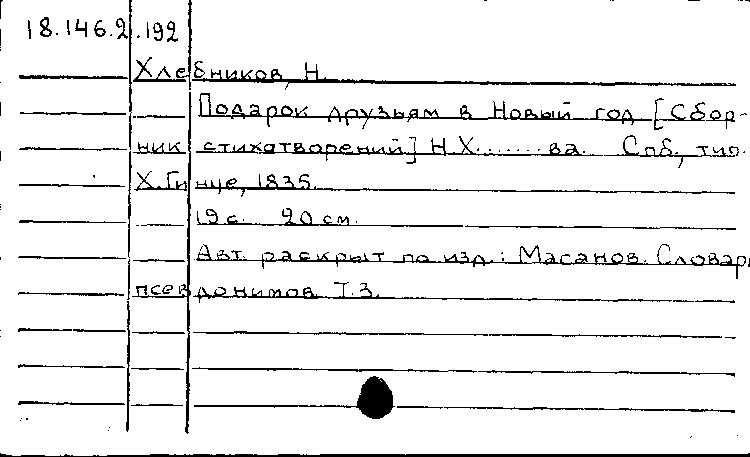 18.146.2.192
Хлебников, Н.
Подарок друзьям в Новый год [Сбор-
ник стихотворений] Н.Х.......ва. Спб., тип.
Х.Гинце, 1835.
19 с. 20 см.
Авт. раскрыт по изд.: Масанов. Словарь
псевдонимов Т.3.